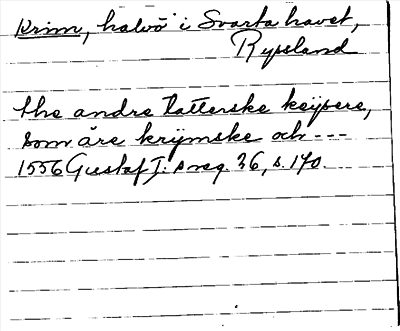 Krim, halvö i Svarta havet,
Ryssland
the andre tatterske keÿsere,
som äre krÿmske och ---
1556 Gustaf I: s reg. 26, s. 140.